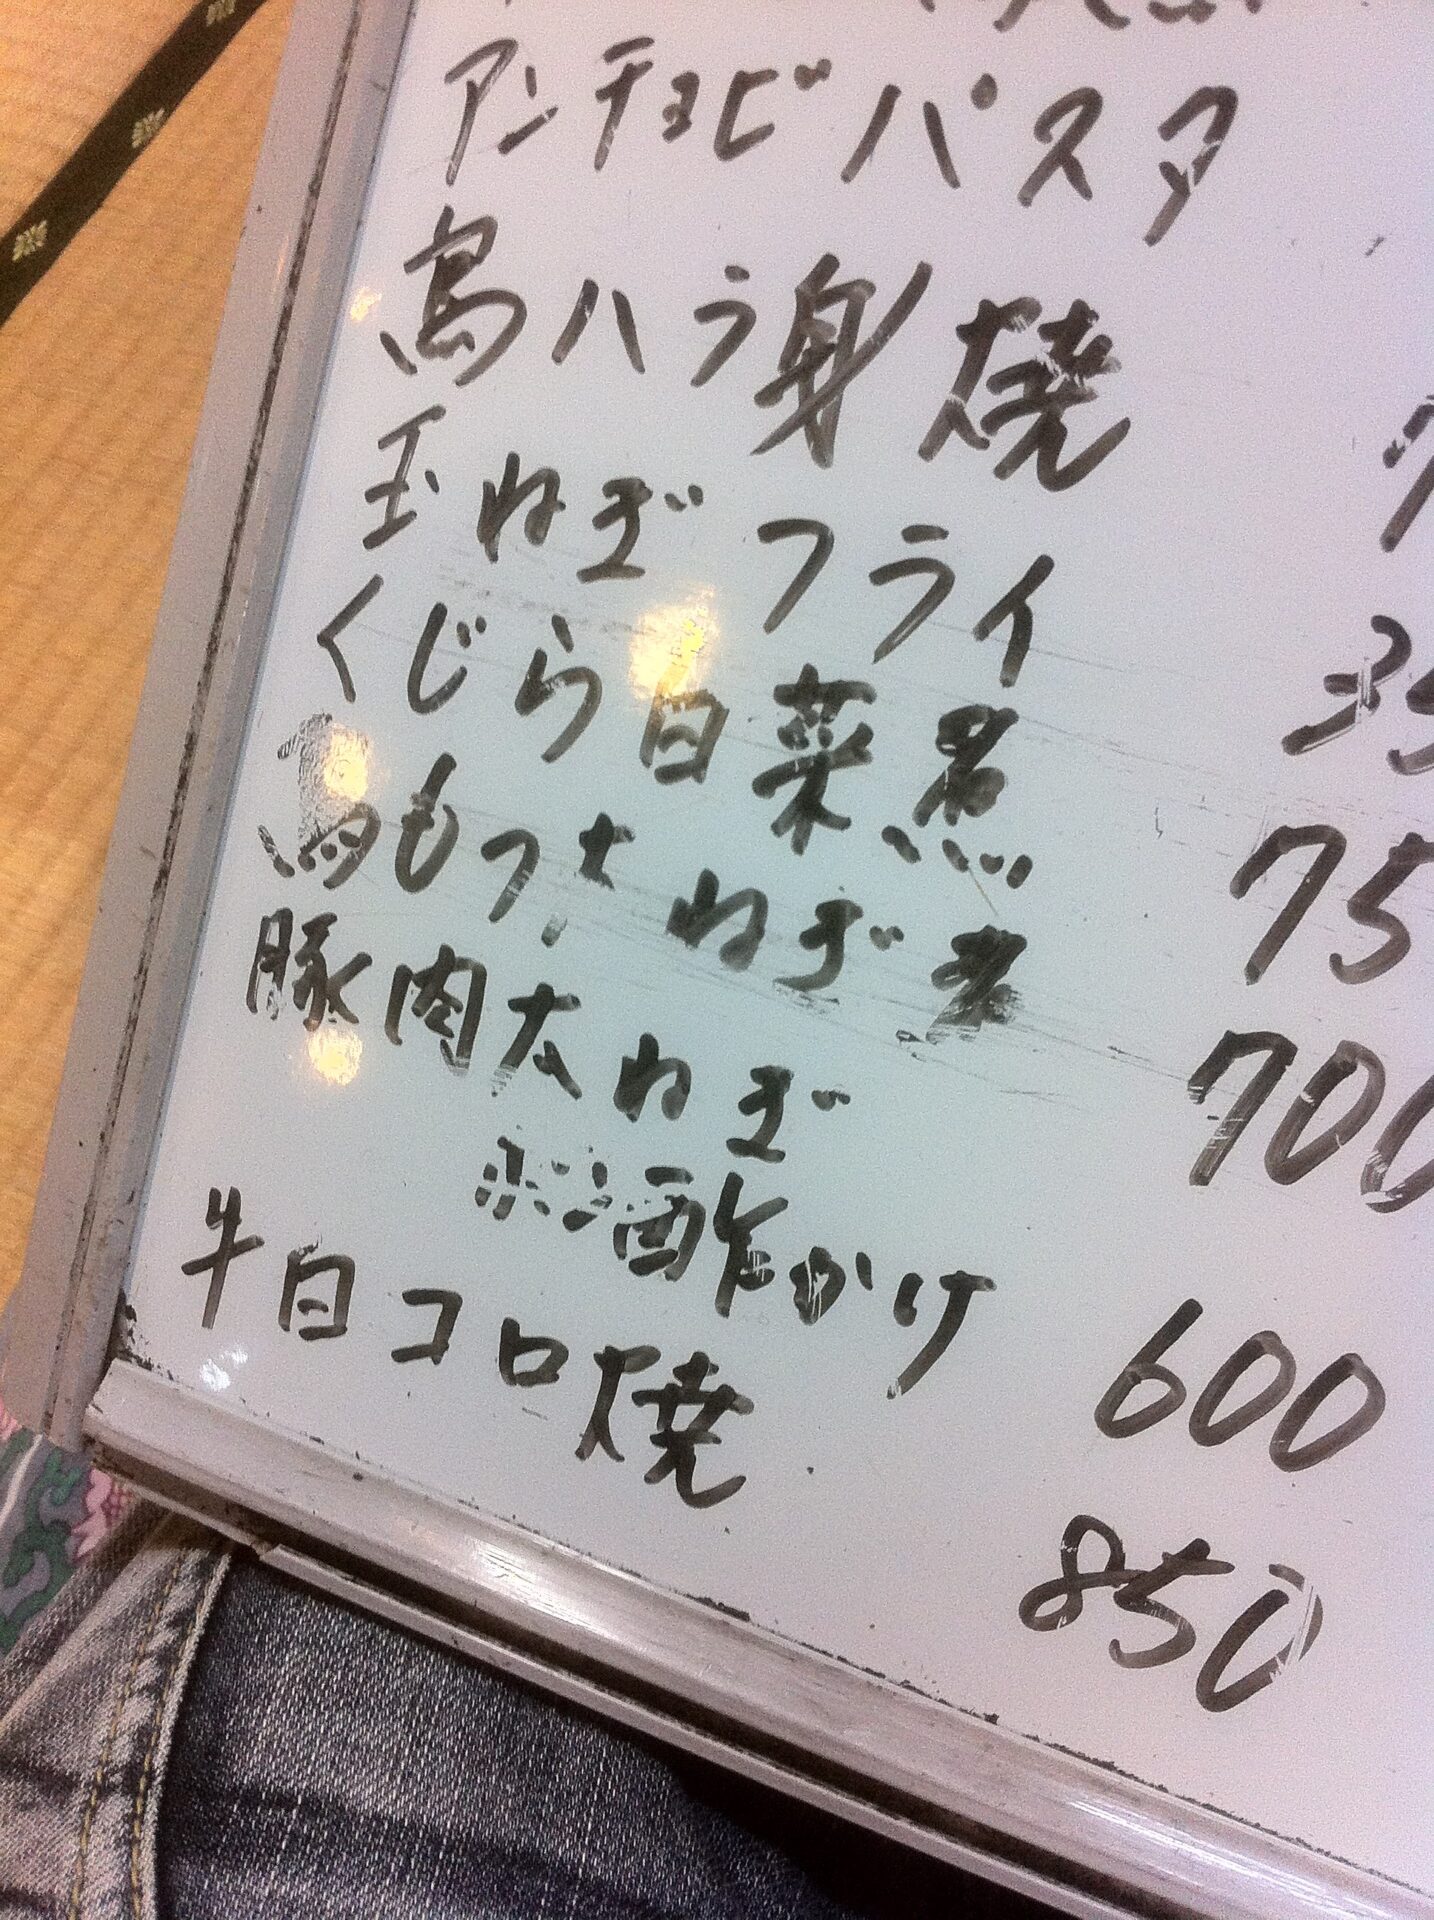 アンチョビパスタ
鳥ハラ身焼 7
玉ねぎフライ 35
くじら白菜煮 75
鳥もつ太ねぎ煮 700
豚肉太ねぎ
ポン酢かけ 600
牛白コロ焼 850